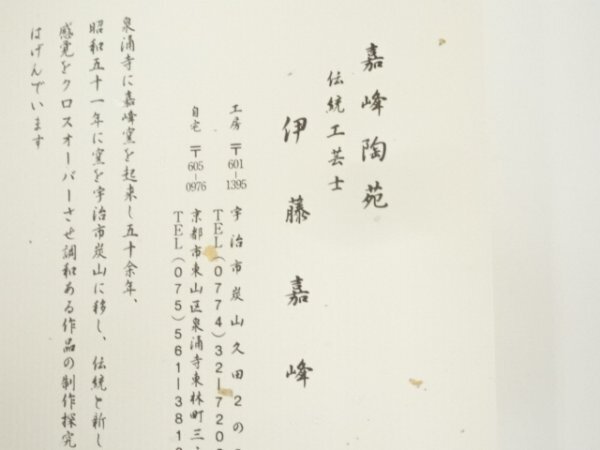 嘉峰陶苑
伝統工芸士
伊藤嘉峰
工房 〒601-1395 宇治市炭山久田2の
TEL(0774)32-720
自宅 〒605-0976 京都市東山区泉涌寺東林町三
TEL(075)561-381
泉涌寺に嘉峰窯を起来し五十余年、
昭和五十一年に窯を宇治市炭山に移し、伝統と新し
感覚をクロスオーバーさせ調和ある作品の制作探究
はげんでいます